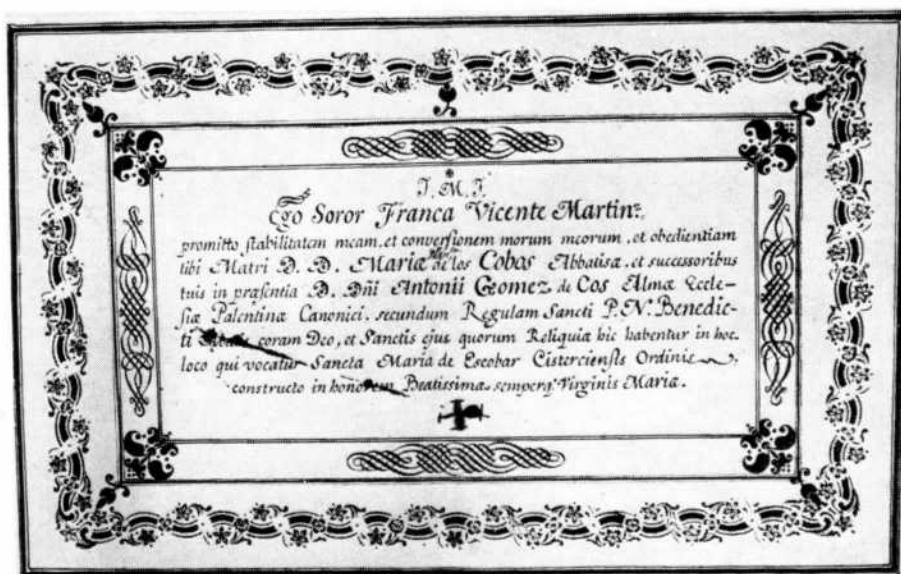 J. M. J.
Ego Soror Franca Vicente Martinz.
promitto stabilitatem meam, et conversionem morum meorum, et obedientiam
tibi Matri D. D. Mariæ de los Cobos Abbatisæ, et successoribus
tuis in præsentia D. Dñi Antonii Gomez de Cos Almæ Eccle-
siæ Palentinæ Canonici, secundum Regulam Sancti P. N. Benedic-
ti coram Deo, et Sanctis ejus quorum Reliquiæ hic habentur in hoc
loco qui vocatur Sancta Maria de Escobar Cisterciensis Ordinis
constructo in honorem Beatissimæ semperq; Virginis Mariæ.